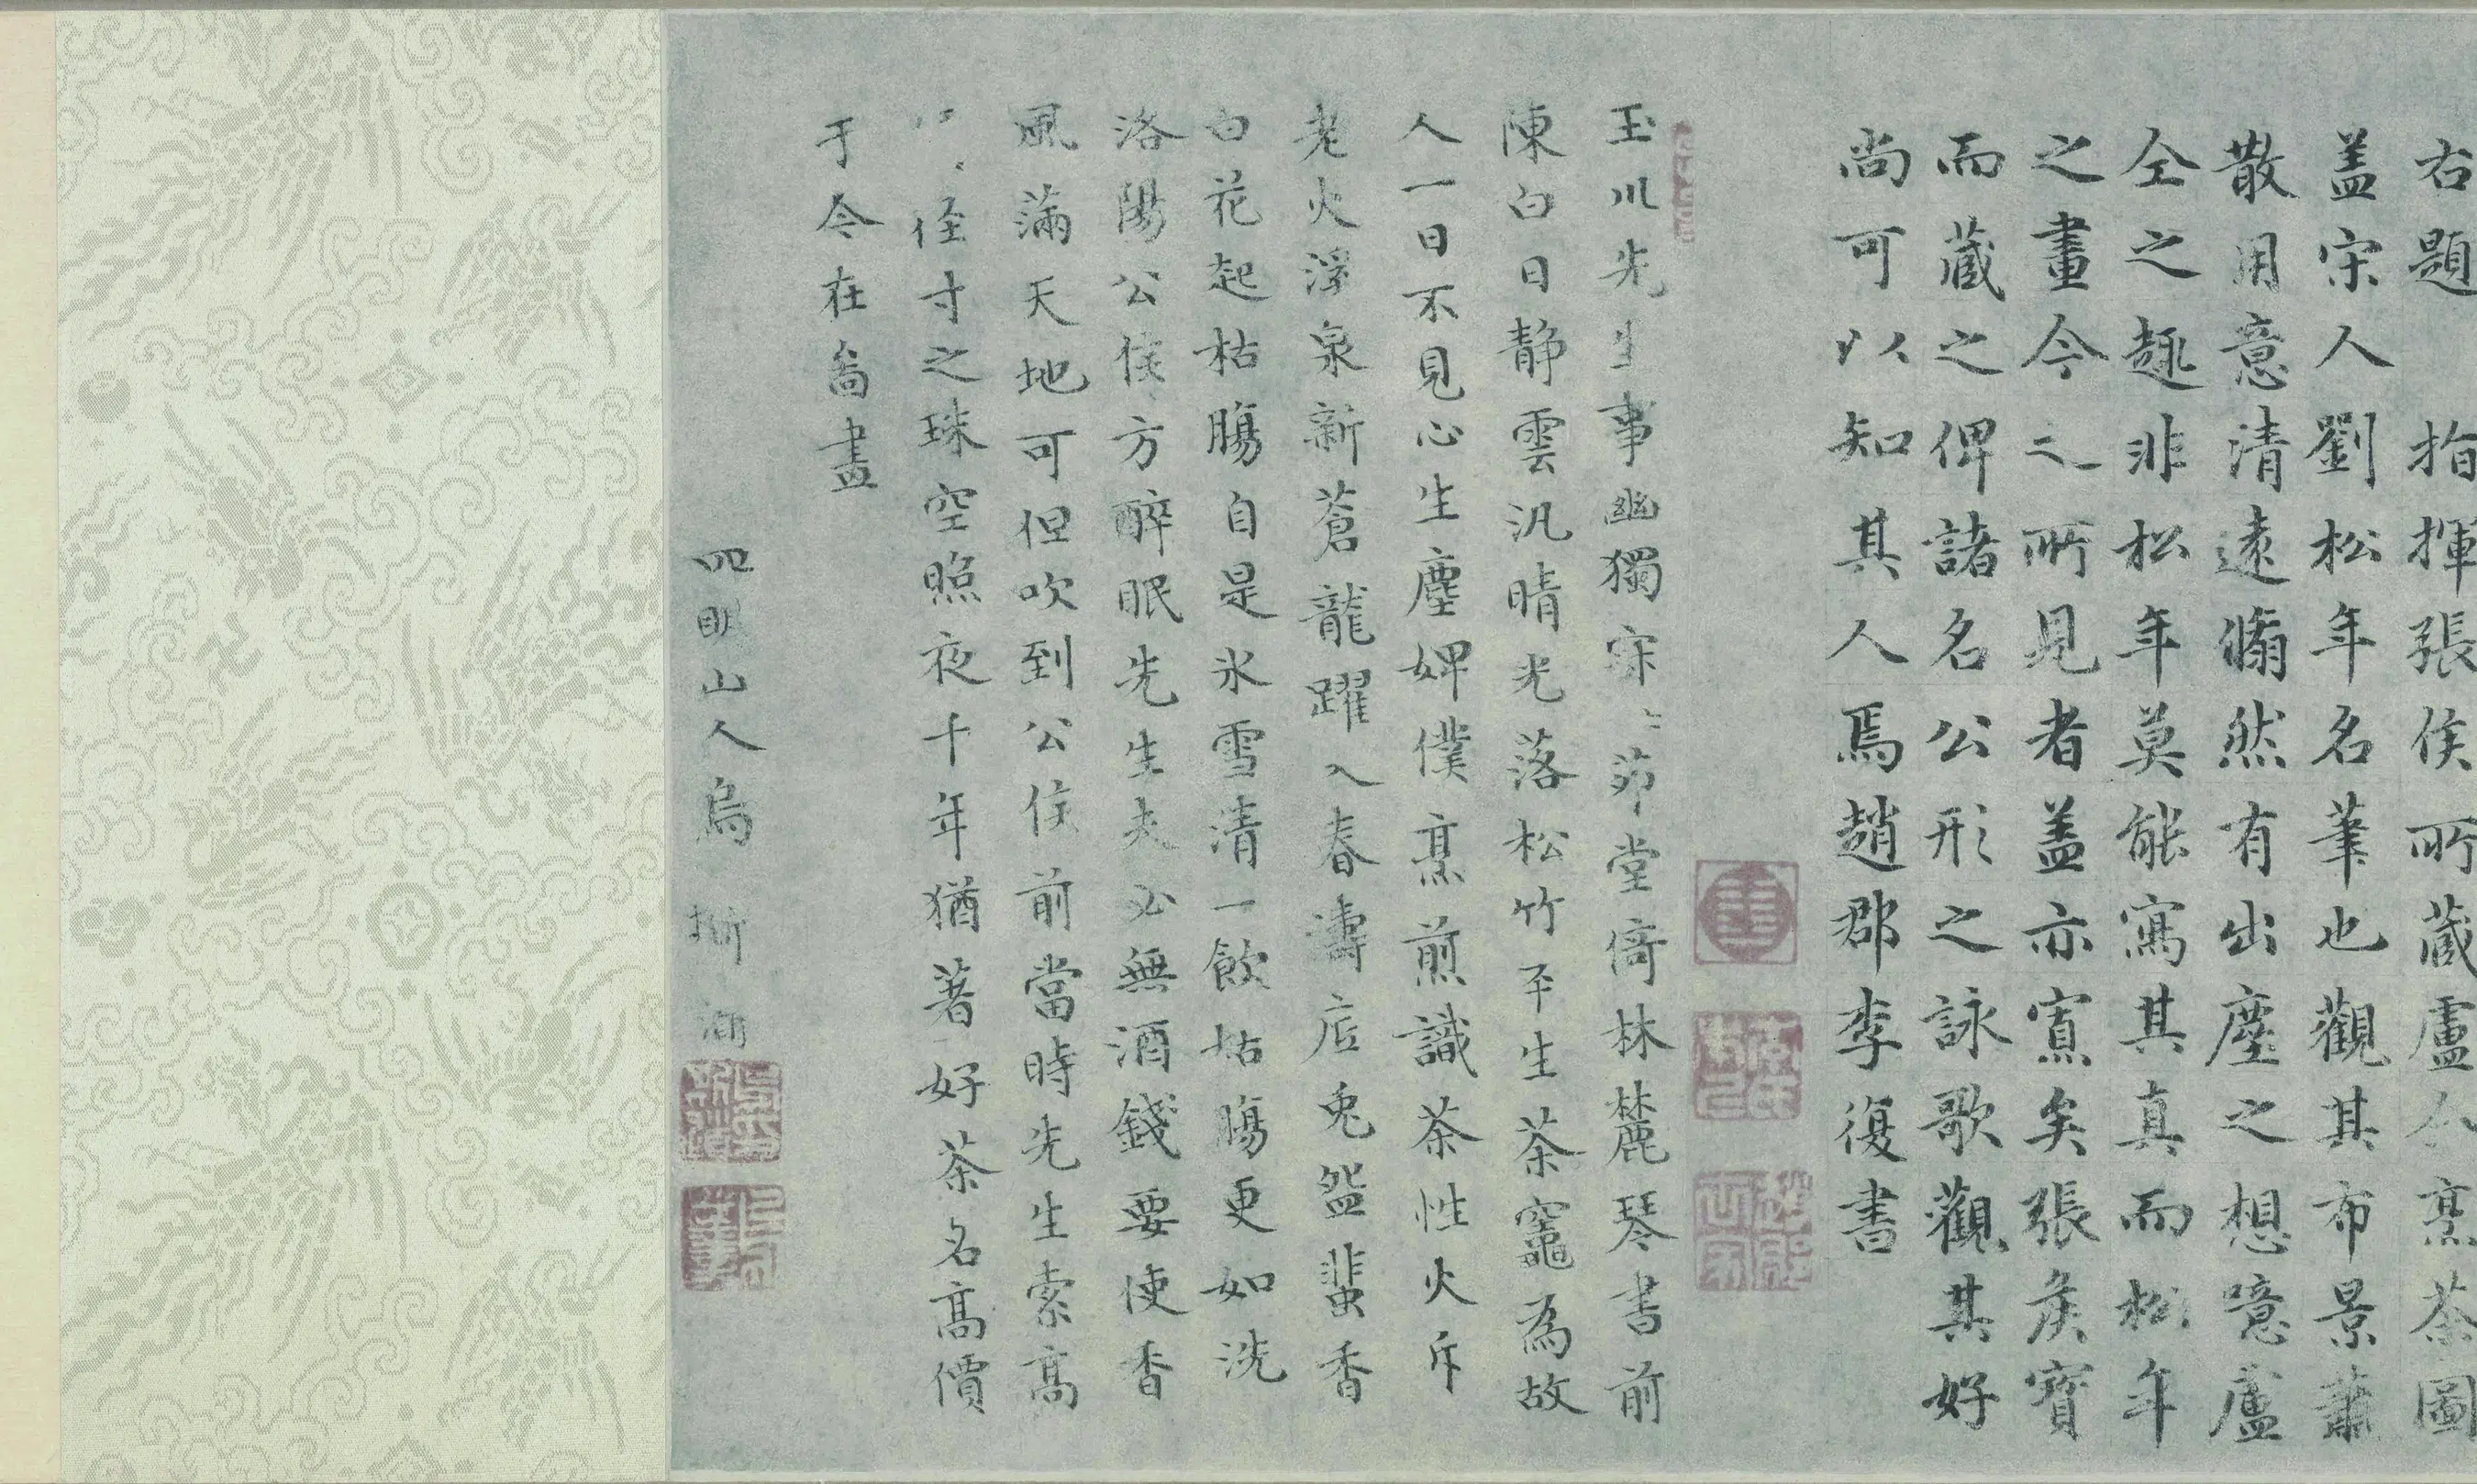 右題 指揮張侯所藏盧仝烹茶圖
盖宋人劉松年名筆也觀其布景蕭
散用意清遠翛然有出塵之想噫盧
仝之趣非松年莫能寫其真而松年
之畫今之所見者盖亦寡矣張侯寳
而蔵之俾諸名公形之詠歌觀其好
尚可以知其人焉趙郡李復書
玉川先生事幽獨 茆堂倚林麓琴書前
陳白日静雲汎晴光落松竹平生茶竈為故
人一日不見心生塵婢僕烹煎識茶性火斥
老火浮泉新蒼龍躍入春濤底兎盌蜚香
白花起枯腸自是氷雪清一飲枯腸更如洗
洛陽公侯方醉眠先生夫必無酒錢要使香
風滿天地可但吹到公侯前當時先生索高
徑寸之珠空照夜十年猶著好茶名高價
于今在啇畫
四明山人烏斯